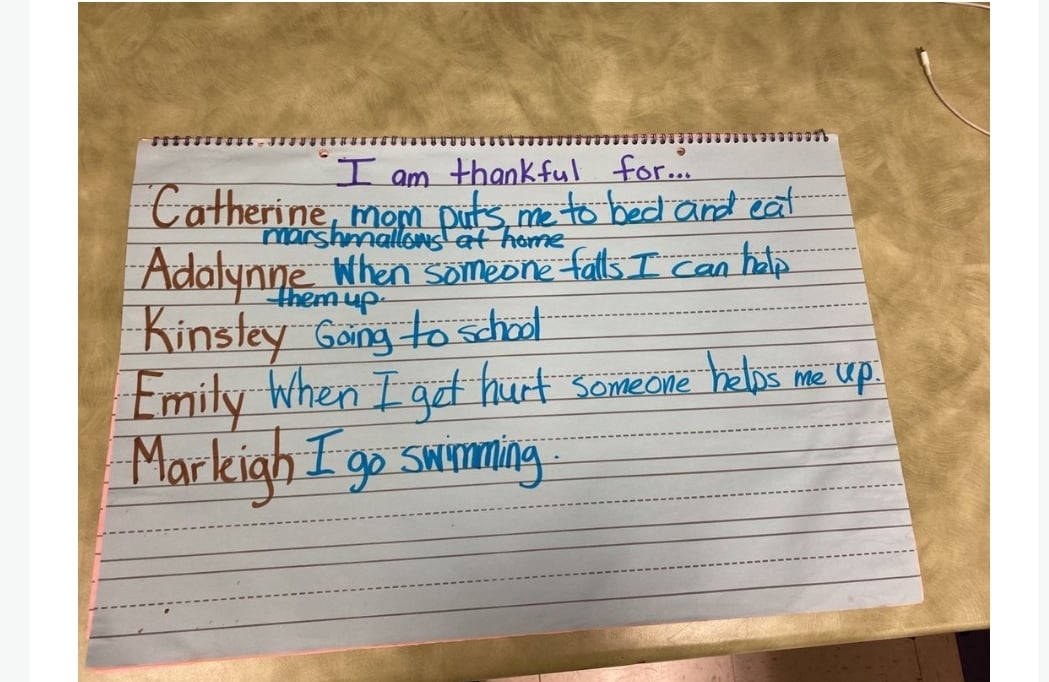 I am thankful for...
Catherine, mom puts me to bed and eat
marshmallows at home
Adalynne When someone falls I can help
them up.
Kinsley Going to school
Emily When I get hurt someone helps me up.
Marleigh I go swimming.